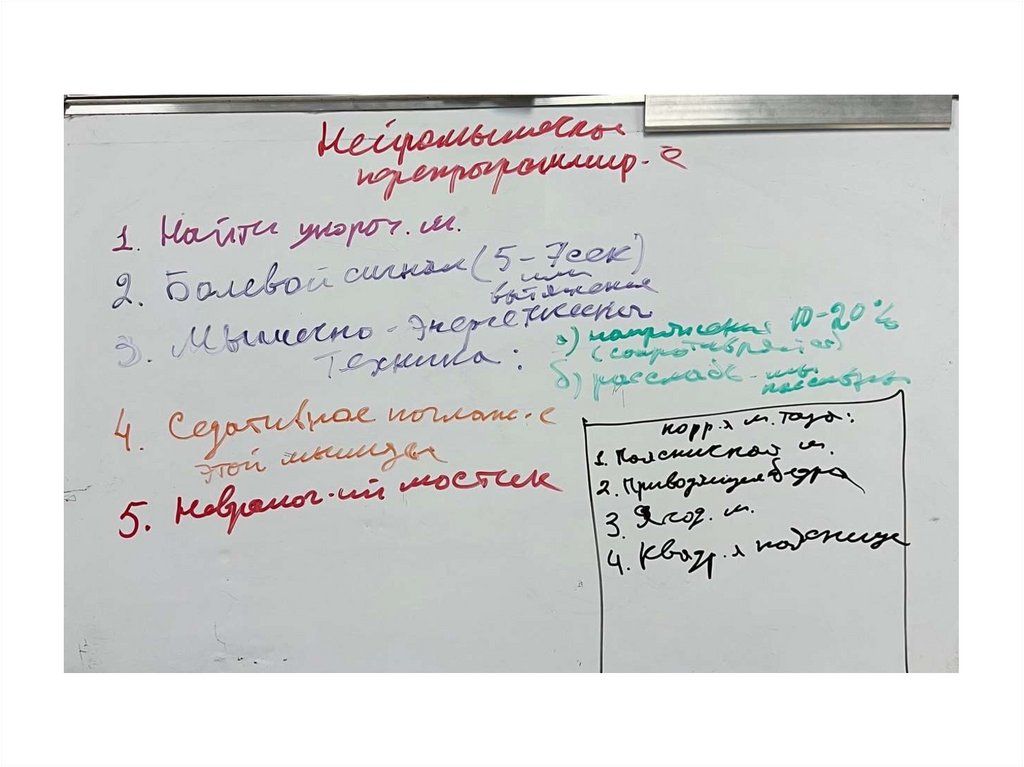 Нейромышечное
перепрограммир-е
1. Найти укороч. м.
2. Болевой сигнал (5-7сек)
или
вытяжение
3. Мышечно-энергетическая
техника:
а) напряжение 10-20%
(сопротивляется)
б) расслабл-мы
пассивны
4. Седативное поглаж-е
этой мышцы
5. Невролог-ий мостик
корр-я м. таза:
1. Поясничная м.
2. Приводящие бедра
3. Ягод. м.
4. Квадр-я поясницы